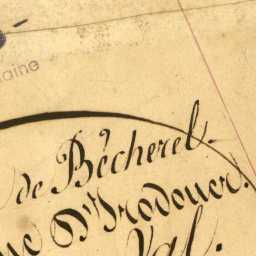 aine
de Bécherel.
ne d'Irodouer.
Val.